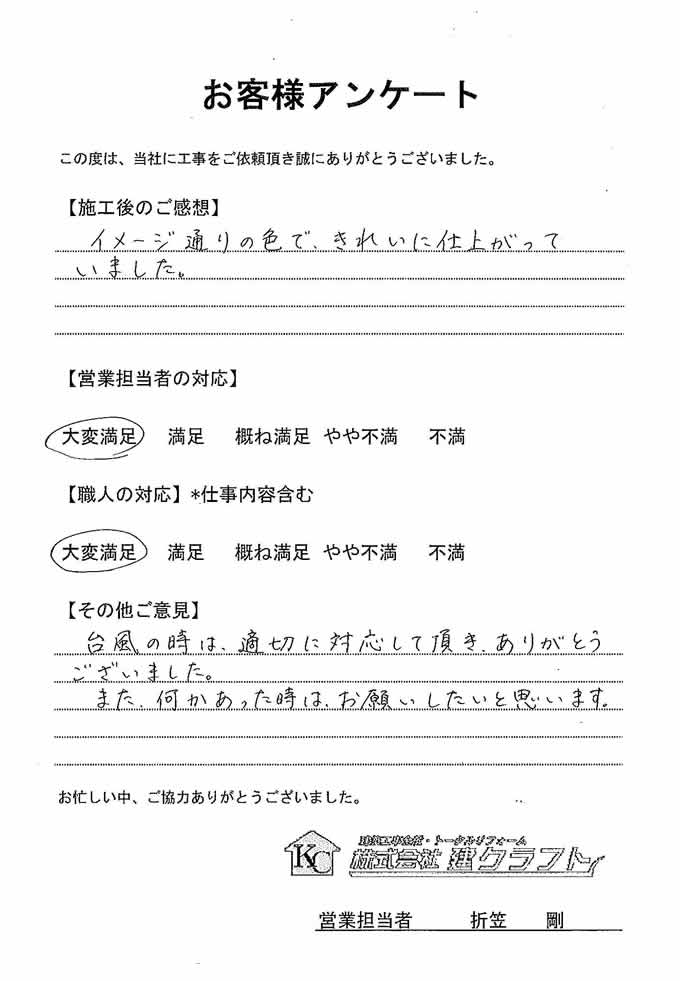 お客様アンケート
この度は、当社に工事をご依頼頂き誠にありがとうございました。
【施工後のご感想】
イメージ通りの色で、きれいに仕上がって
いました。
【営業担当者の対応】
大変満足 満足 概ね満足 やや不満 不満
【職人の対応】*仕事内容含む
大変満足 満足 概ね満足 やや不満 不満
【その他ご意見】
台風の時は、適切に対応して頂き、ありがとう
ございました。
また、何かあった時は、お願いしたいと思います。
お忙しい中、ご協力ありがとうございました。
KC
・トータルリフォーム
株式会社 建クラフト
営業担当者 折笠 剛